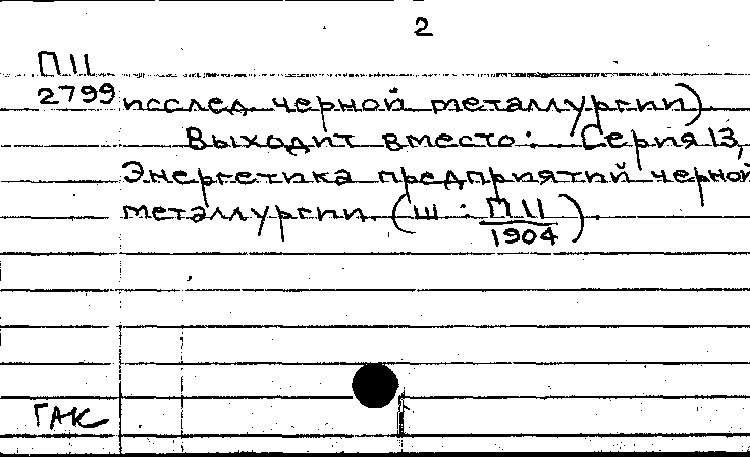 2
П 11
2799 исслед. черной металлургии).
Выходит вместо: Серия 13,
Энергетика предприятий черной
металлургии. (Ш : П 11
1904 ).
ГАК